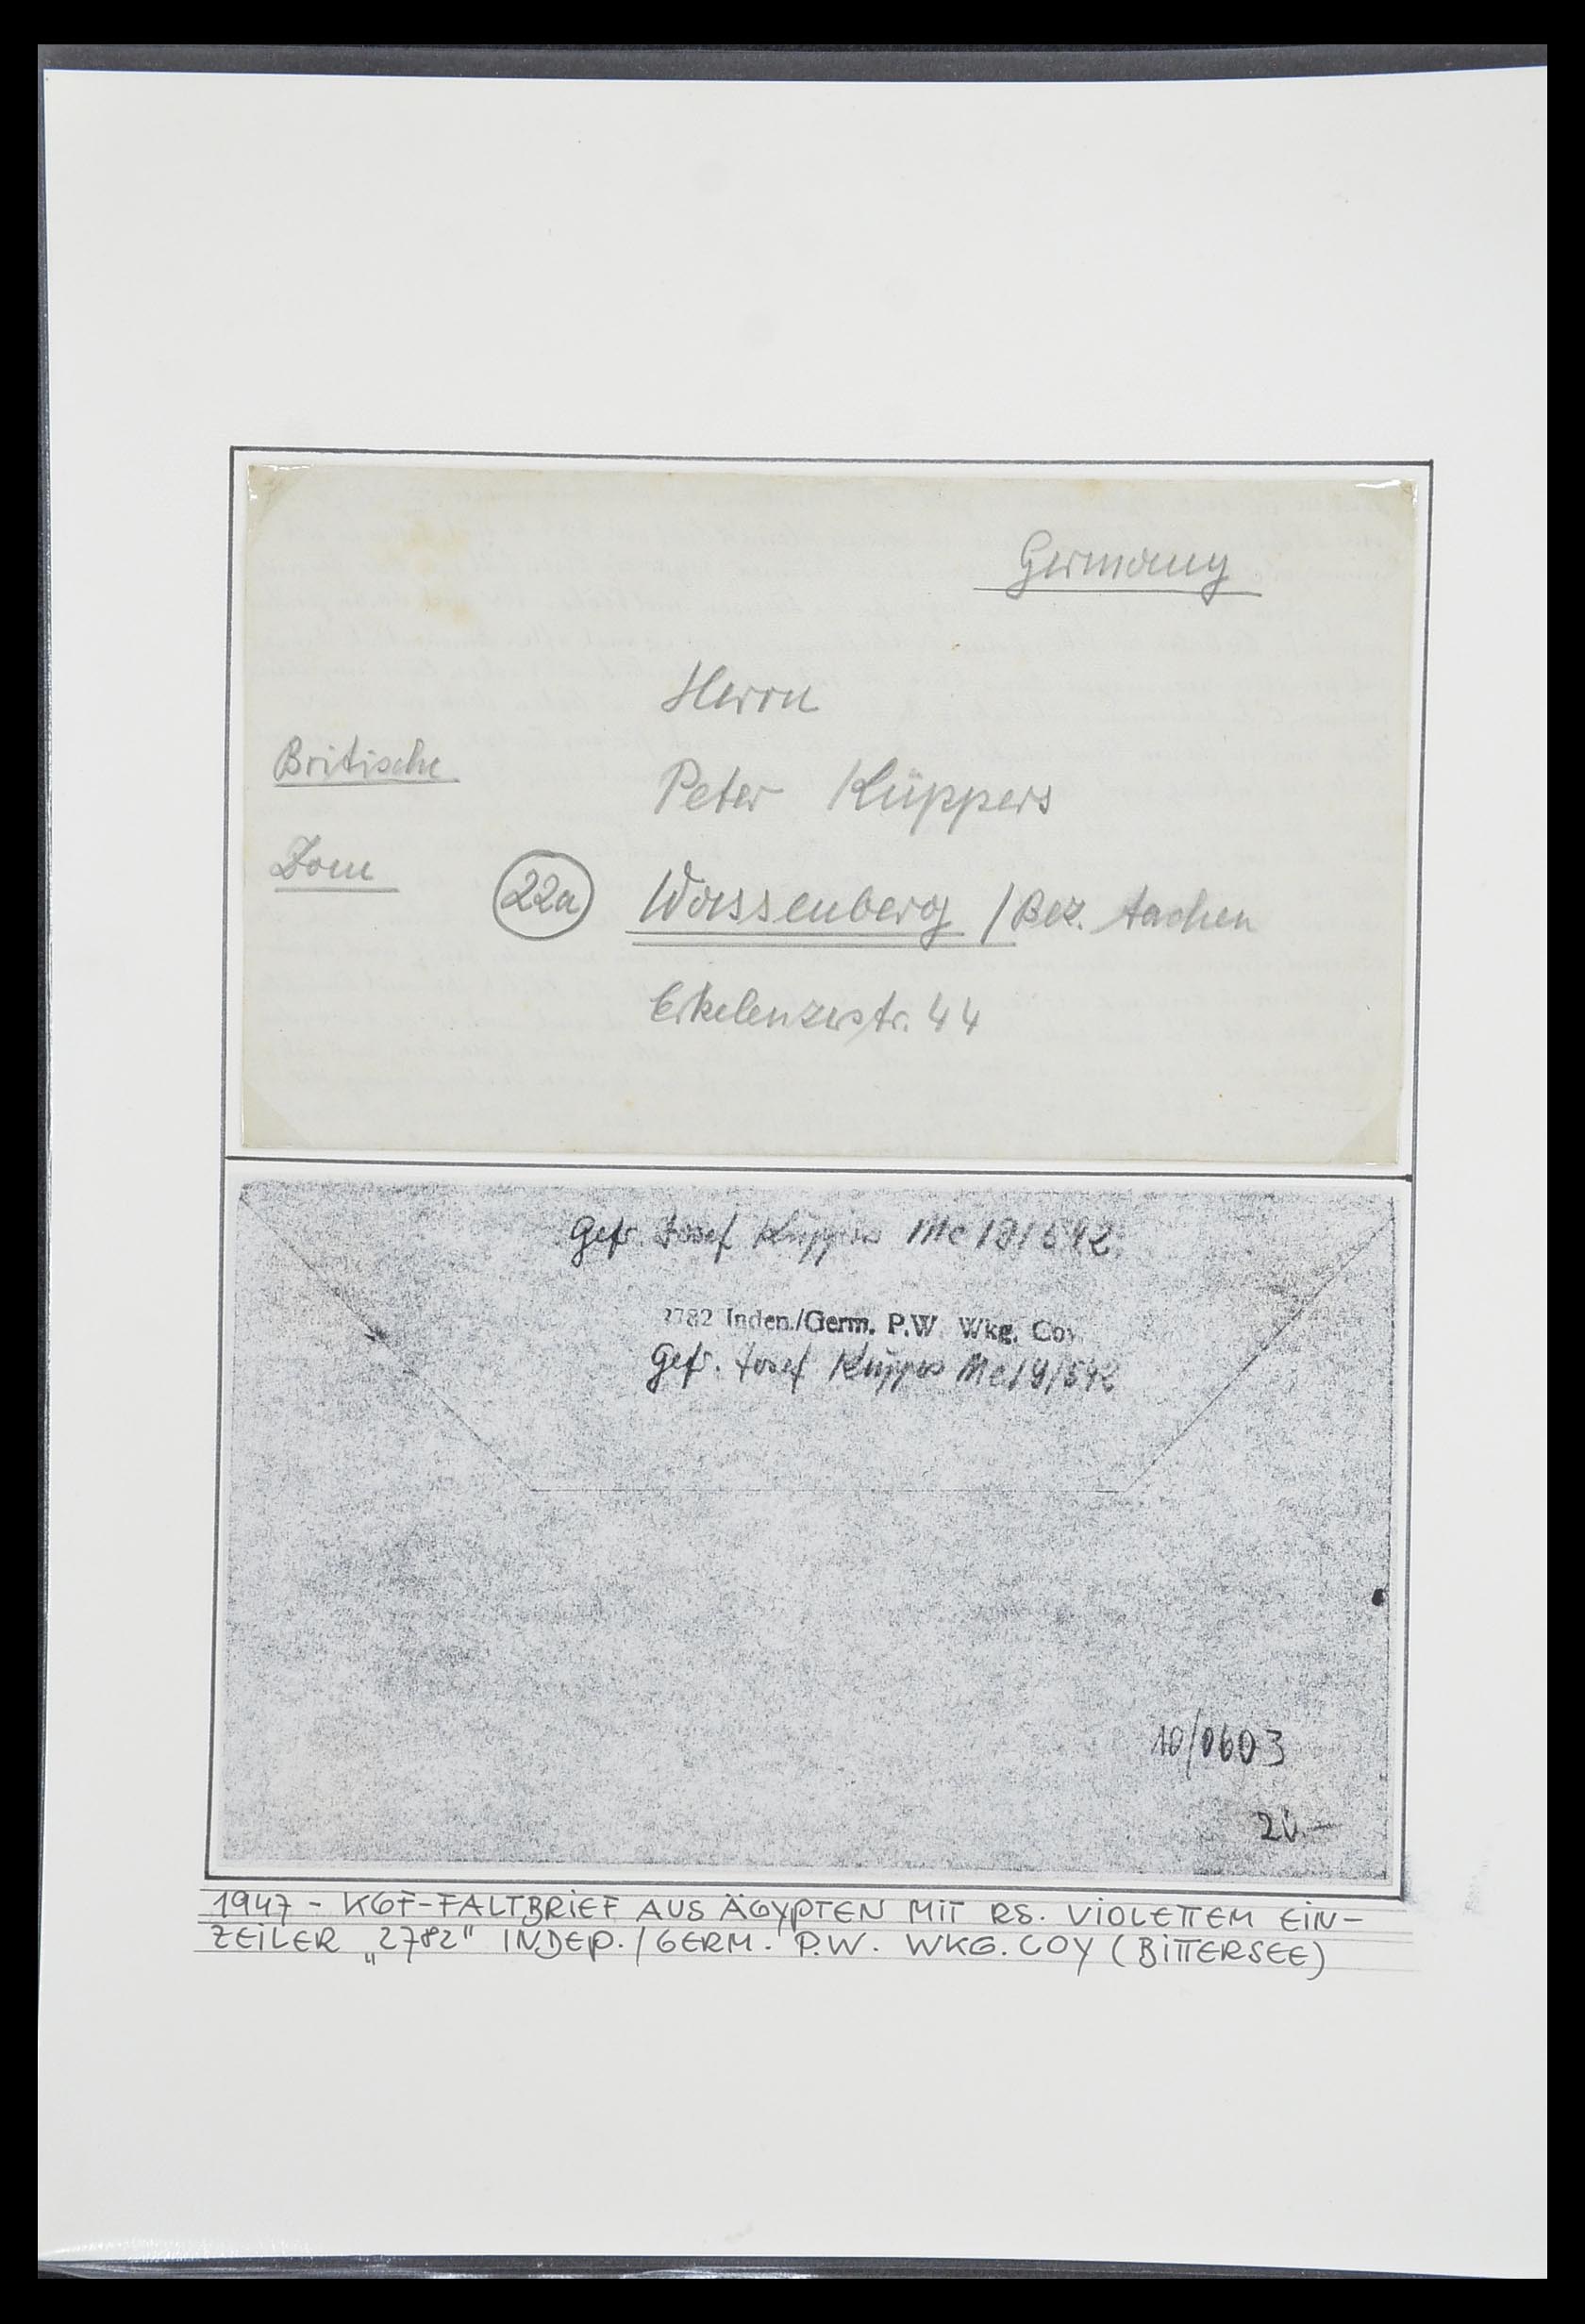 Germany
Herrn
Britische
Peter Küppers
Zone
22a Wassenberg / Bez. Aachen
Erkelenzerstr. 44
Gefr. Josef Küppers
2782 Inden./Germ. P.W. Wkg. Coy.
Gefr. Josef Küppers Me19/542
10/0603
1947 - KGF-FALTBRIEF AUS ÄGYPTEN MIT RS. VIOLETTEM EIN-
ZEILER „2782" INDEP. / GERM. P.W. WKG. COY (BITTERSEE)